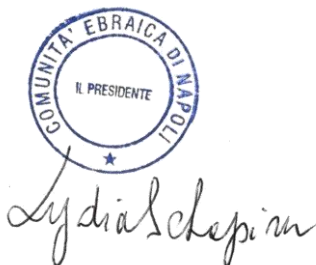 COMUNITA' EBRAICA DI NAPOLI
IL PRESIDENTE
Lydia Schapirer